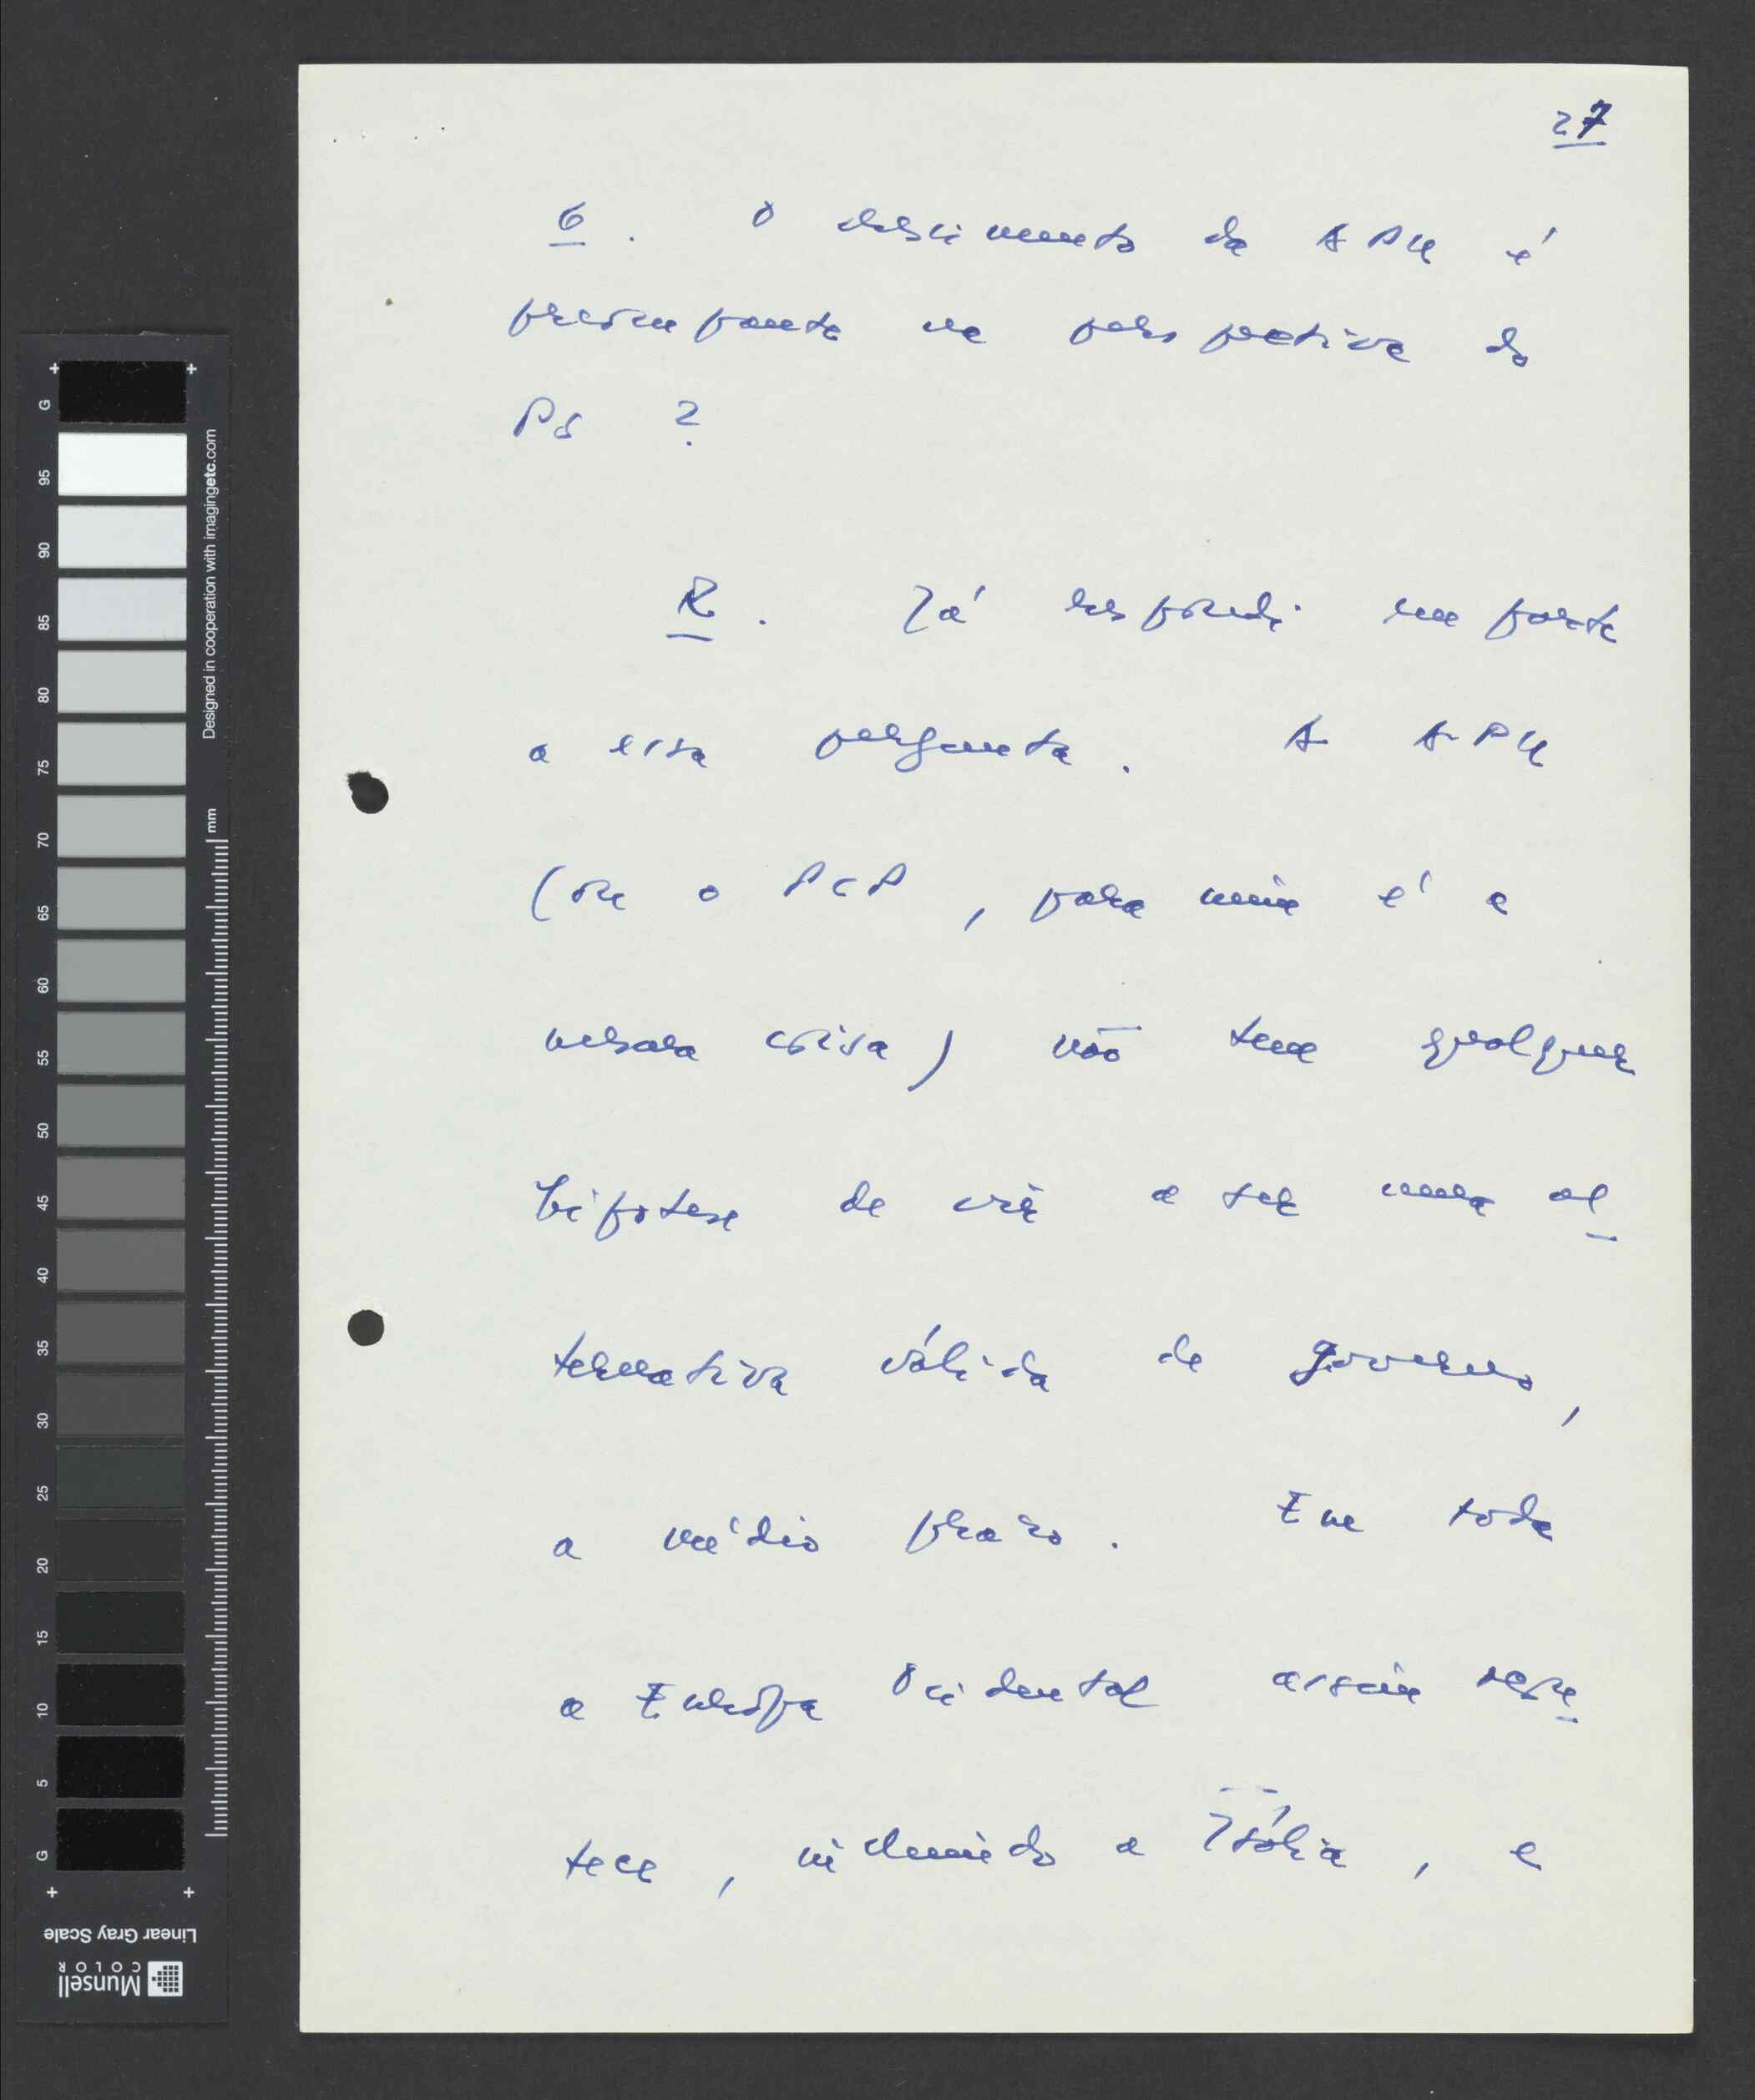 27
6. O crescimento da APU é
preocupante na perspectiva do
PS ?
R. Já respondi em parte
a essa pergunta. A APU
(ou o PCP, para mim é a
mesma coisa) não tem qualquer
hipótese de vir a ser uma al
ternativa válida de governo,
a médio prazo. Em toda
a Európa Ocidental assim
tece, incluindo a Itália, e
G
95
90
85
80
75
70
65
60
55
50
45
40
35
30
25
20
15
10
5
G
Designed in cooperation with imagingetc.com
mm
Linear Gray Scale
Munsell
COLOR